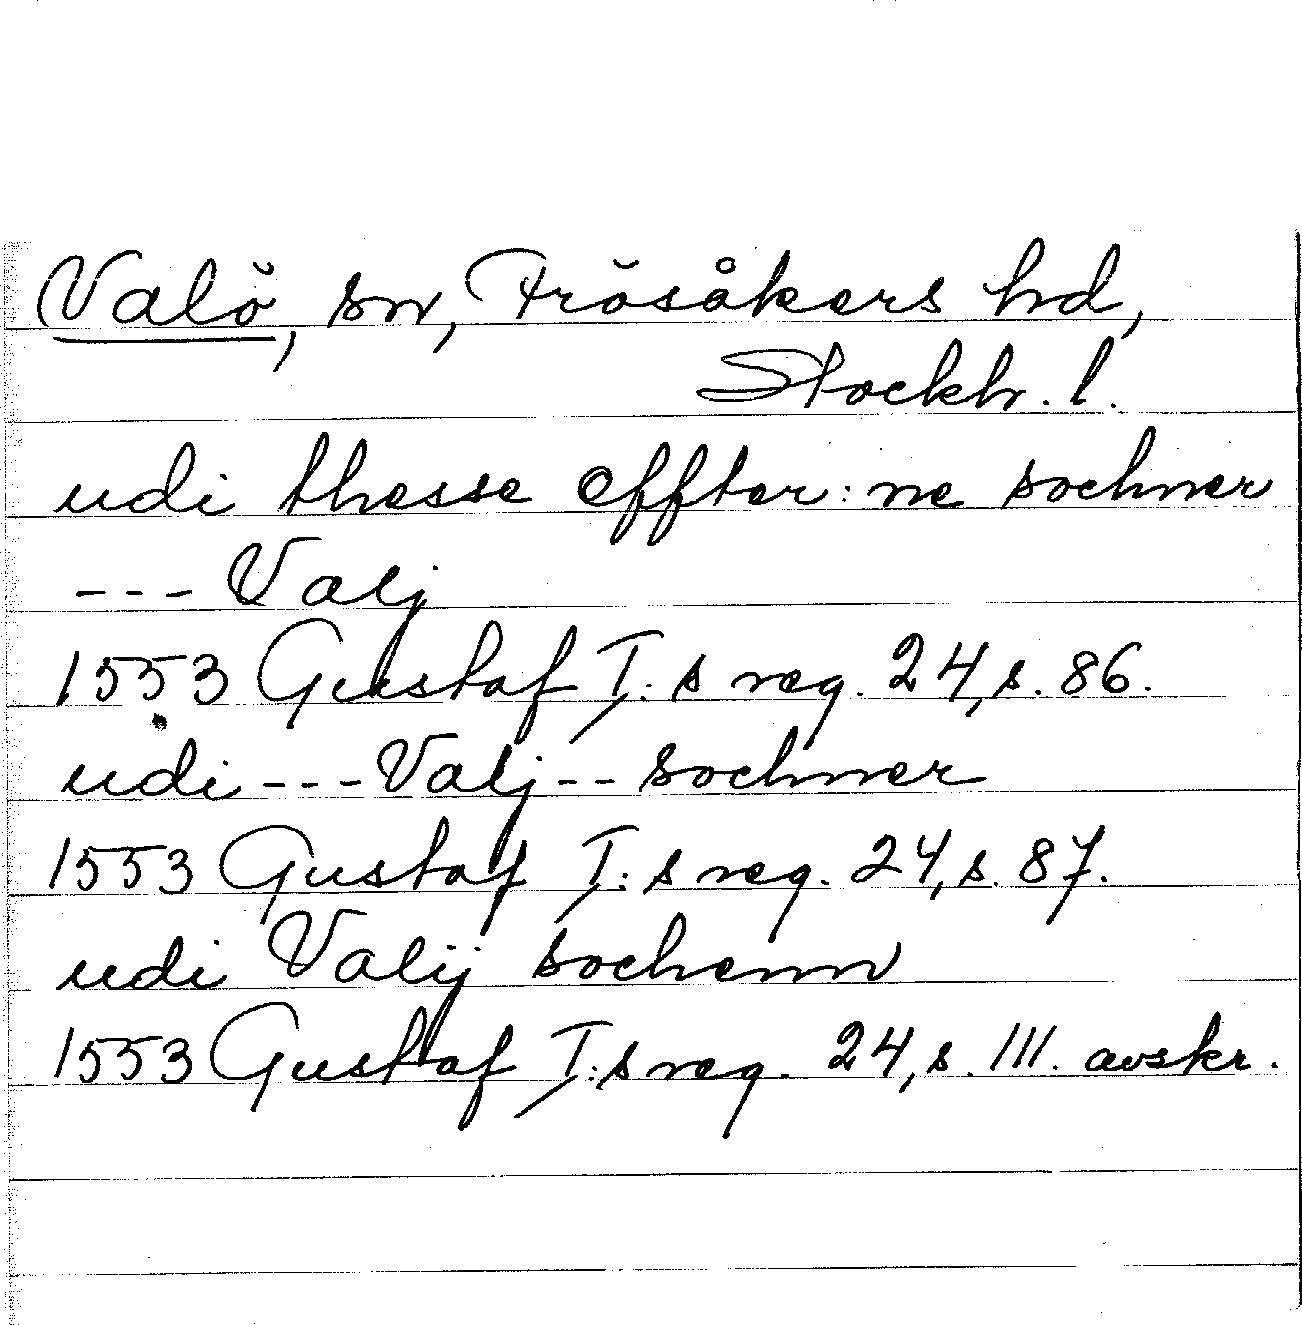 Valö, sn, Frösåkers hd,
Stockh. l.
udi thesse effter: ne sochner
--- Valj
1553 Gustaf I:s reg. 24, s. 86.
udi --- Valj -- sochner
1553 Gustaf I:s reg. 24, s. 87.
udi Valij sochenn
1553 Gustaf I:s reg. 24, s. 111. avskr.